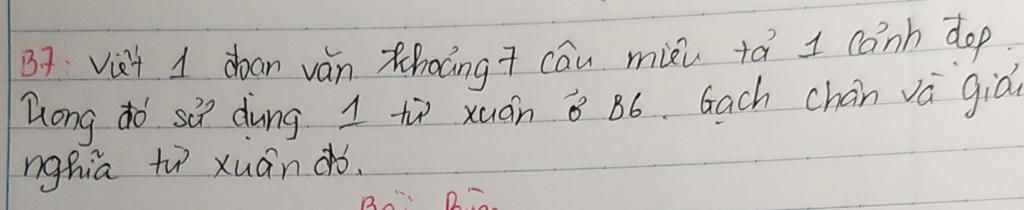 B7: Viết 1 đoạn văn khoảng 7 câu miêu tả 1 cảnh đẹp.
Trong đó sử dụng 1 từ xuân ở B6. Gạch chân và giải
nghĩa từ xuân đó.